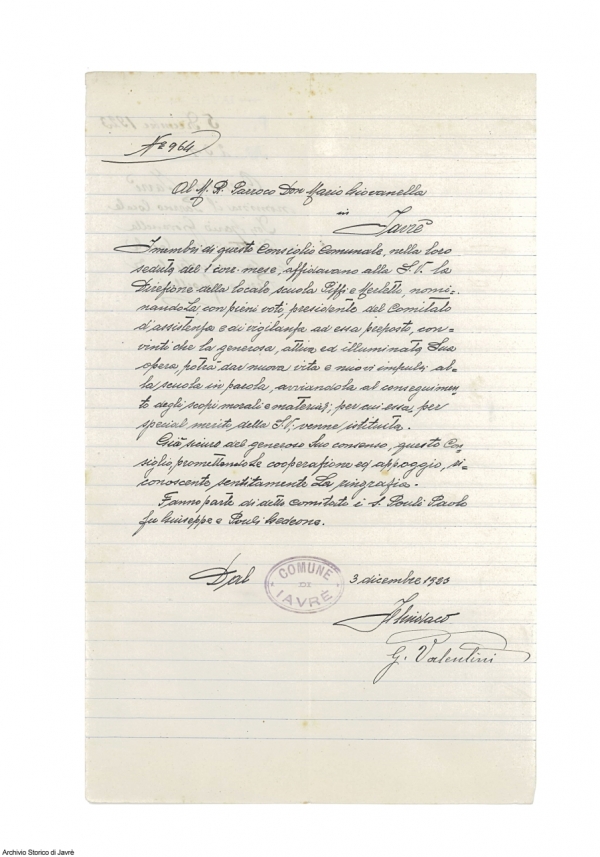 Nº 964
Al M. R. Parroco Don Mario Giovanella
in
Javrè
I membri di questo Consiglio Comunale, nella loro
seduta del 1 cor. mese, affidavano alla S.V. la
Direzione della locale scuola Piffi e Merletti, nomi=
nandola, con pieni voti, presidente del Comitato
d'assistenza e di vigilanza ad essa preposto, con=
vinti che la generosa, attiva ed illuminata Sua
opera, potrà dar nuova vita e nuovi impulsi al=
la scuola in parola, avviandola al conseguimen=
to degli scopi morali e materiali, per cui essa, per
special merito della S.V., venne istituita.
Già sicuro del generoso Suo consenso, questo Con=
siglio, promettendole cooperazione ed appoggio, ri=
conoscente, sentitamente La ringrazia.
Fanno parte di detto Comitato i S. Pouli Paolo
fu Giuseppe e Pouli Gedeone.
Dal COMUNE DI IAVRÈ 3 dicembre 1923
Il Sindaco
G. Valentini
Archivio Storico di Javrè